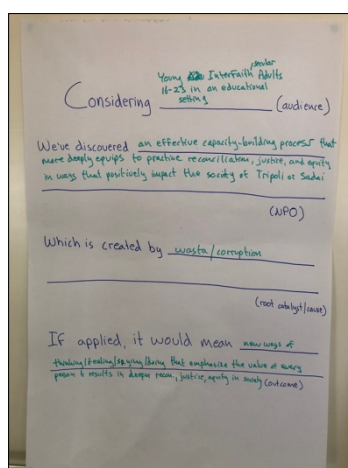 secular
Young InterFaith Adults
16-23 in an educational
setting
Considering (audience)
We've discovered an effective capacity-building process that
more deeply equips to practice reconciliation, justice, and equity
in ways that positively impact the society of Tripoli or
(NPO)
Which is created by wasta/corruption
(root catalyst/cause)
If applied, it would mean new ways of
thinking/feeling/saying/doing that emphasize the value of every
person & results in deeper recon, justice, equity in society (outcome)